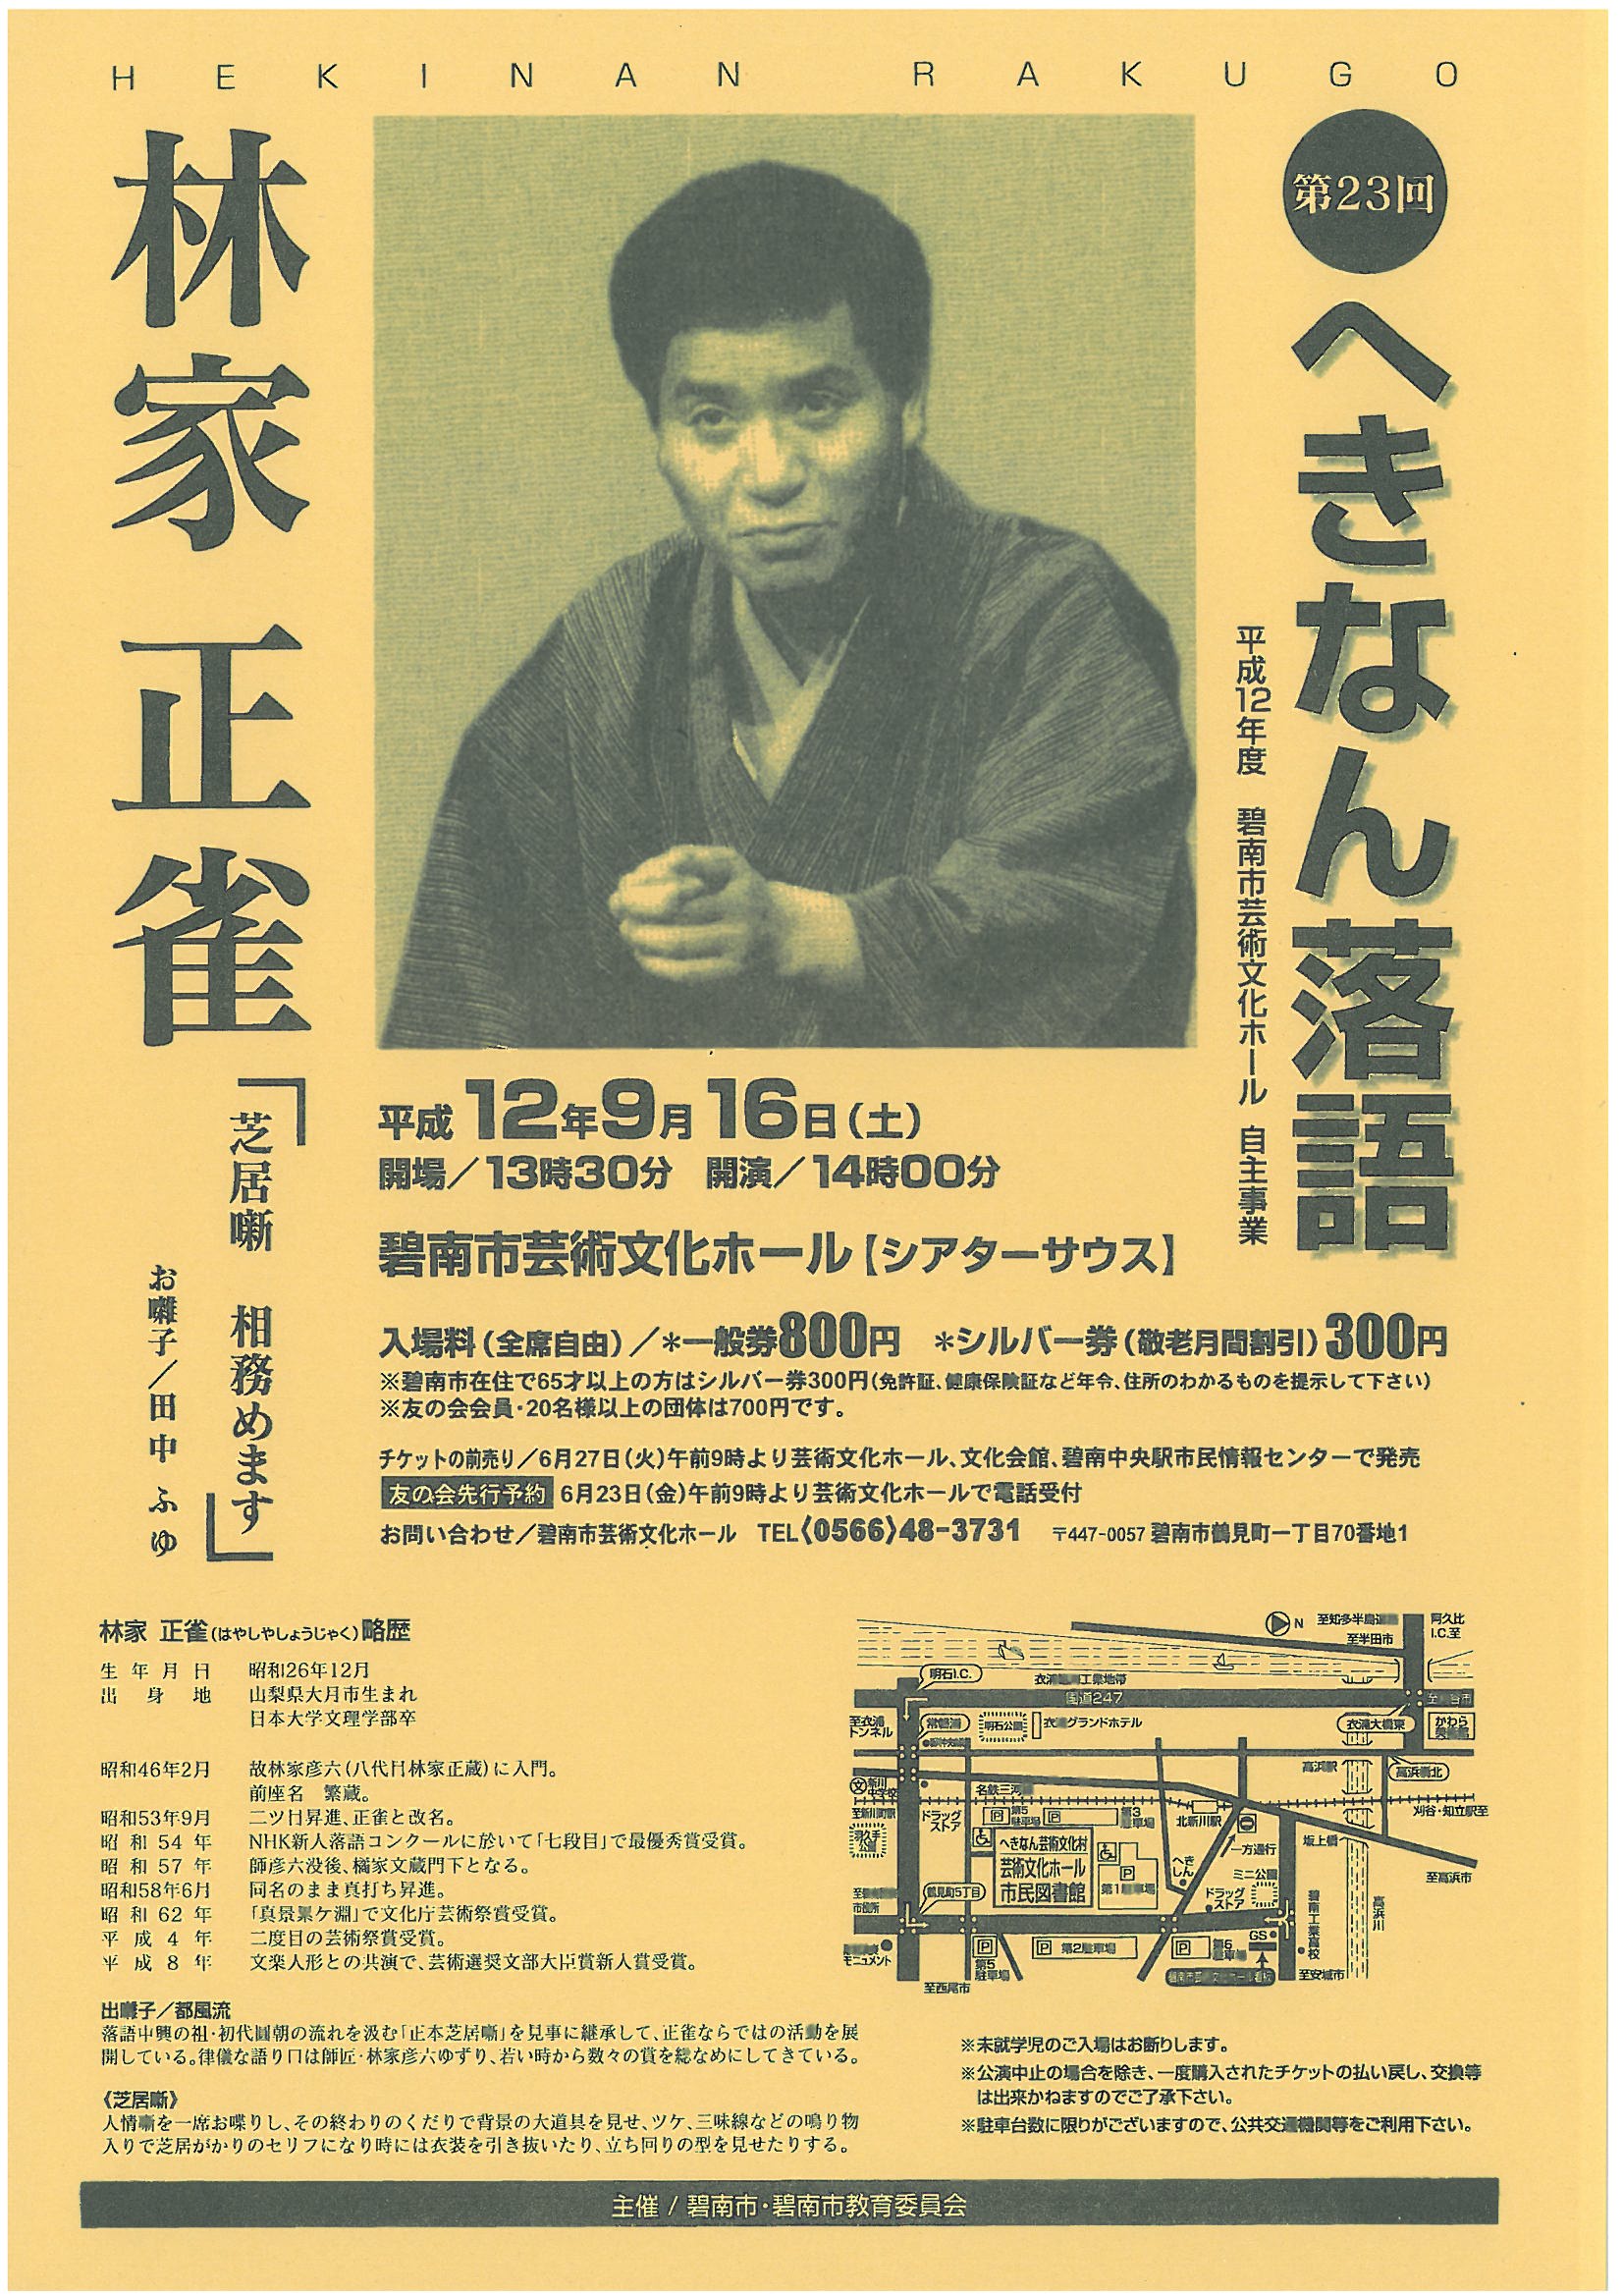 HEKINAN RAKUGO
第23回
へきなん落語
平成12年度 碧南市芸術文化ホール 自主事業
林家 正雀
「芝居噺 相務めます」
お囃子／田中 ふゆ
平成12年9月16日（土）
開場／13時30分 開演／14時00分
碧南市芸術文化ホール【シアターサウス】
入場料（全席自由）／＊一般券800円 ＊シルバー券（敬老月間割引）300円
※碧南市在住で65才以上の方はシルバー券300円（免許証、健康保険証など年令、住所のわかるものを提示して下さい）
※友の会会員・20名様以上の団体は700円です。
チケットの前売り／6月27日（火）午前9時より芸術文化ホール、文化会館、碧南中央駅市民情報センターで発売
友の会先行予約 6月23日（金）午前9時より芸術文化ホールで電話受付
お問い合わせ／碧南市芸術文化ホール TEL〈0566〉48-3731 〒447-0057 碧南市鶴見町一丁目70番地1
林家 正雀（はやしやしょうじゃく）略歴
生年月日 昭和26年12月
出身地 山梨県大月市生まれ
日本大学文理学部卒
昭和46年2月 故林家彦六（八代目林家正蔵）に入門。
前座名 繁蔵。
昭和53年9月 二ツ目昇進、正雀と改名。
昭和54年 NHK新人落語コンクールに於いて「七段目」で最優秀賞受賞。
昭和57年 師彦六没後、橘家文蔵門下となる。
昭和58年6月 同名のまま真打ち昇進。
昭和62年 「真景累ケ淵」で文化庁芸術祭賞受賞。
平成4年 二度目の芸術祭賞受賞。
平成8年 文楽人形との共演で、芸術選奨文部大臣賞新人賞受賞。
出囃子／都風流
落語中興の祖・初代圓朝の流れを汲む「正本芝居噺」を見事に継承して、正雀ならではの活動を展
開している。律儀な語り口は師匠・林家彦六ゆずり、若い時から数々の賞を総なめにしてきている。
《芝居噺》
人情噺を一席お喋りし、その終わりのくだりで背景の大道具を見せ、ツケ、三味線などの鳴り物
入りで芝居がかりのセリフになり時には衣装を引き抜いたり、立ち回りの型を見せたりする。
N
至知多半島道
至半田市
阿久比
I.C.至
明石I.C.
工業地帯
国道247
至衣浦
トンネル
常磐浦
明石公園
グランドホテル
衣浦大橋東
かわら
美術館
高浜駅
高浜橋北
新川
中学校
名鉄三河
至新川町駅
ドラッグ
ストア
P 第5
駐車場
P
第3
駐車場
北新川駅
刈谷・知立駅至
一方通行
坂上橋
至高浜市
へきなん芸術文化村
芸術文化ホール
市民図書館
P
第1駐車場
へき
しん
ミニ公園
ドラッグ
ストア
鶴見町5丁目
市役所
モニュメント
P
第5
駐車場
P 第2駐車場
P 第6
駐車場
GS
碧南工業高校
高浜川
至西尾市
至安城市
※未就学児のご入場はお断りします。
※公演中止の場合を除き、一度購入されたチケットの払い戻し、交換等
は出来かねますのでご了承下さい。
※駐車台数に限りがございますので、公共交通機関等をご利用下さい。
主催 / 碧南市・碧南市教育委員会